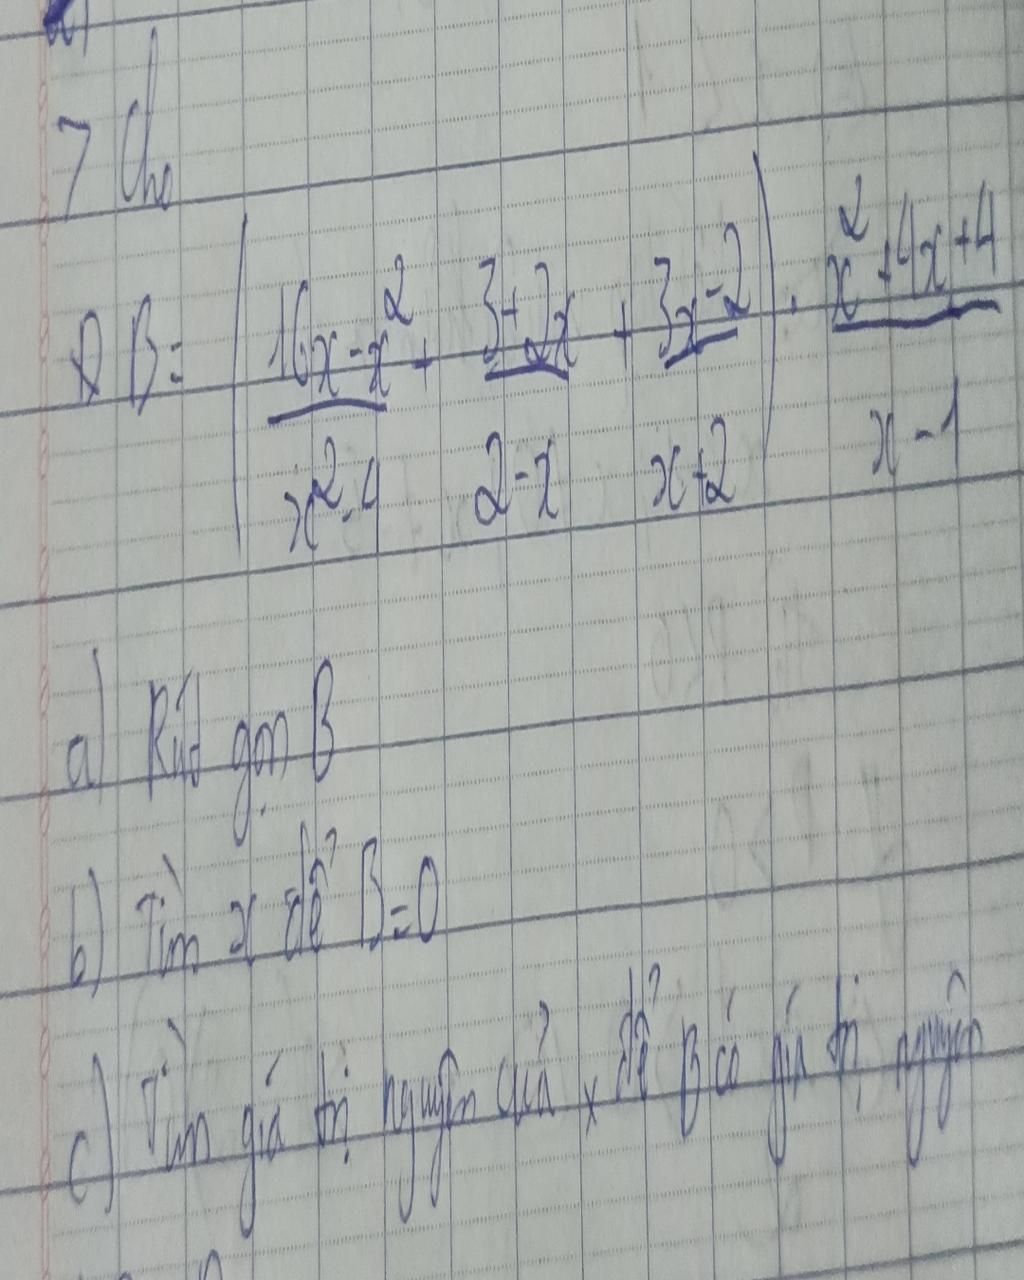 7 Cho
B = ( \frac{16x - x^2}{x^2 - 4} + \frac{3 + 2x}{2 - x} + \frac{3x - 2}{x + 2} ) . \frac{x^2 + 4x + 4}{x - 1}
a) Rút gọn B
b) Tìm x để B = 0
c) Tìm giá trị nguyên của x để B có giá trị nguyên